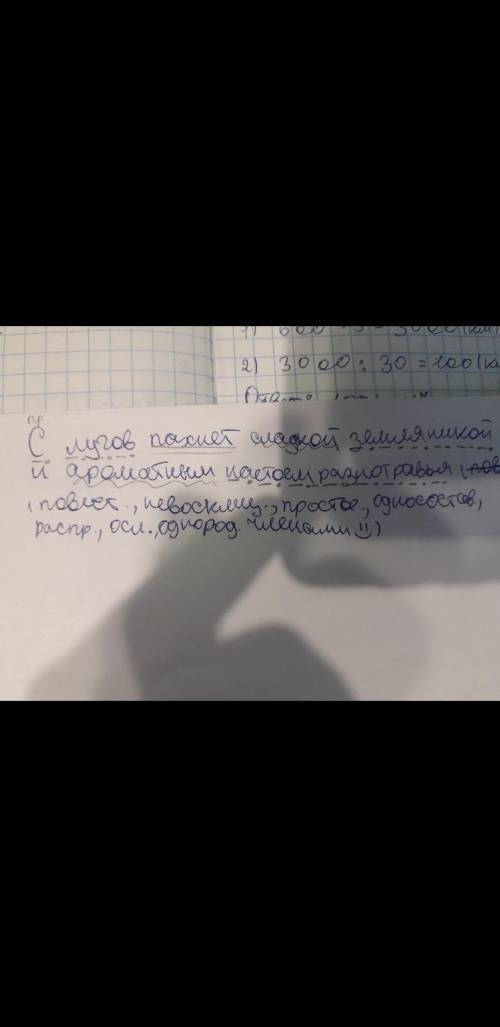 2) 3000 : 30 = 100 (к
пр.
С лугов пахнет сладкой земляникой
и ароматным настоем разнотравья (
(повест., невосклиц., простое, односостав,
распр., осл., однород. членами)